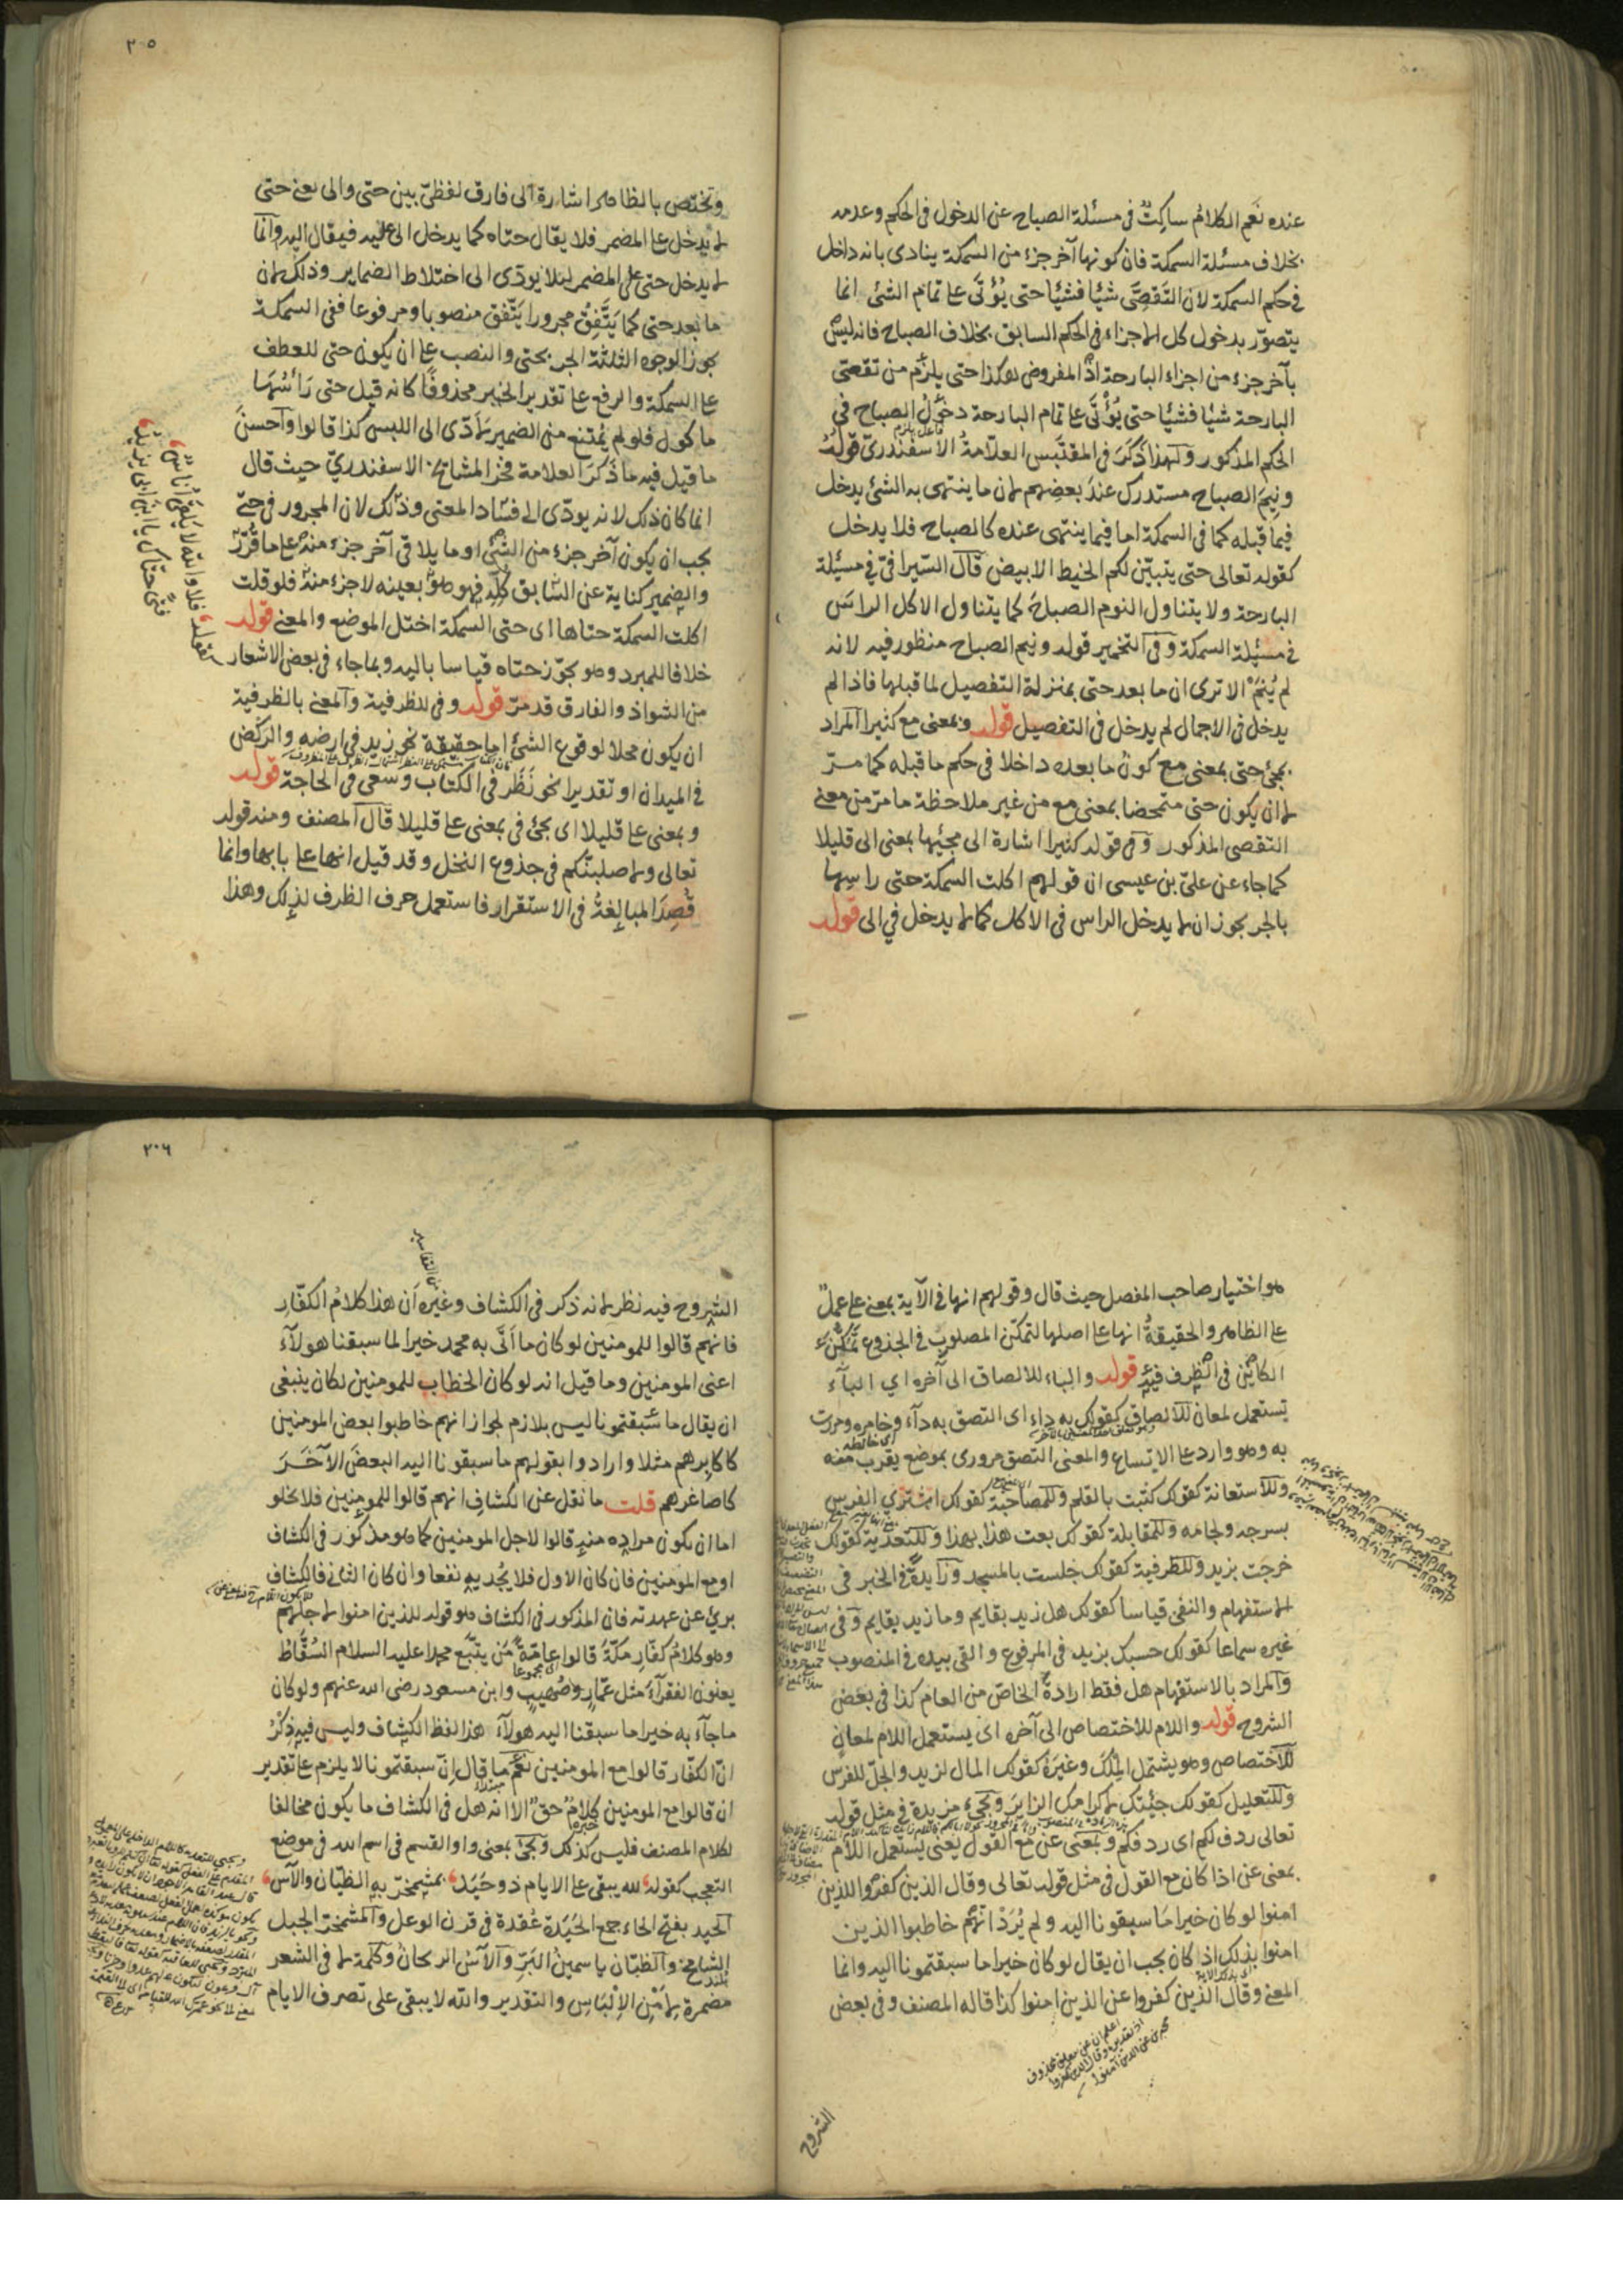 عنده نعم الكلام ساكت في مسئلة الصباح عن الدخول في الحكم وعدمه
بخلاف مسئلة السمكة فان كونها آخر جزء من السمكة ينادى بانه داخل
في حكم السمكة لان التقصى شيئا فشيئا حتى يؤتى على تمام الشئ انما
يتصور بدخول كل الاجزاء في الحكم السابق بخلاف الصباح فانه ليس
بآخر جزء من اجزاء البارحة اذ المفروض هكذا حتى يلزم من تقصى
البارحة شيئا فشيئا حتى يؤتى على تمام البارحة دخول الصباح في
الحكم المذكور ولهذا ذكر في المقتبس العلامة الاسفندرى قوله
ونيم الصباح مستدرك عند بعضهم لان ما ينتهى به الشئ يدخل
فيما قبله كما في السمكة اما فيما ينتهى عنده كالصباح فلا يدخل
كقوله تعالى حتى يتبين لكم الخيط الابيض قال السيرافى في مسئلة
البارحة ولا يتناول النوم الصباح كما يتناول الاكل الراس
في مسئلة السمكة وفى التخمير قوله ونيم الصباح منظور فيه لانه
لم ينم الا ترى ان ما بعد حتى بمنزلة التفصيل لما قبلها فاذا لم
يدخل في الاجمال لم يدخل في التفصيل قوله وبمعنى مع كثيرا المراد
بمجئ حتى بمعنى مع كون ما بعده داخلا في حكم ما قبله كما مر
لا ان يكون حتى متمحضا بمعنى مع من غير ملاحظة ما مر من معنى
التقصى المذكور وفى قوله كثيرا اشارة الى مجيئها بمعنى الى قليلا
كما جاء عن على بن عيسى ان قولهم اكلت السمكة حتى راسها
بالجر يجوز ان لا يدخل الراس في الاكل كما لا يدخل في الى قوله
٢٠٥
وتختص بالظاهر اشارة الى فارق لفظى بين حتى والى يعنى حتى
لا يدخل على المضمر فلا يقال حتاه كما يدخل الى عليه فيقال اليه وانما
لا يدخل حتى على المضمر لئلا يؤدى الى اختلاط الضماير وذلك لان
ما بعد حتى كما يتفق مجرورا يتفق منصوبا ومرفوعا ففى السمكة
يجوز الوجوه الثلثة الجر بحتى والنصب على ان يكون حتى للعطف
على السمكة والرفع على تقدير الخبر محذوفا كانه قيل حتى رأسها
ماكول فلو لم يمتنع من الضمير لادى الى اللبس كذا قالوا واحسن
ما قيل فيه ما ذكر العلامة فخر المشايخ الاسفندرى حيث قال
انما كان ذلك لانه يودى الى فساد المعنى وذلك لان المجرور في حتى
يجب ان يكون آخر جزء من الشئ او ما يلاقى آخر جزء منه على ما قرر
والضمير كناية عن السابق كله فهو هو بعينه لا جزء منه فلو قلت
اكلت السمكة حتاها اى حتى السمكة اختل الموضع والمعنى قوله
خلافا للمبرد وهو يجوز حتاه قياسا باليه وبما جاء في بعض الاشعار
من الشواذ والفارق قد مر قوله وفى للظرفية والمعنى بالظرفية
ان يكون محلا لوقوع الشئ اما حقيقة نحو زيد في ارضه والركض
في الميدان او تقديرا نحو نظر في الكتاب وسعى في الحاجة قوله
وبمعنى على قليلا اى يجئ في بمعنى على قليلا قال المصنف ومنه قوله
تعالى ولاصلبنكم في جذوع النخل وقد قيل انها على بابها وانما
قصد المبالغة في الاستقرار فاستعمل حرف الظرف لذلك وهذا
كقوله فلا والله لا يلقى اناس
فتى حتاك يا ابن ابى يزيد
هو اختيار صاحب المفصل حيث قال وقولهم انها في الآية بمعنى على عمل
على الظاهر والحقيقة انها على اصلها لتمكن المصلوب في الجذوع تمكن
الكائن في الظرف فيه قوله والباء للالصاق الى آخره اى الباء
يستعمل لمعان للالصاق كقولك به داء اى التصق به داء وخامره ومررت
به وهو وارد على الاتساع والمعنى التصق مرورى بموضع يقرب منه
وللاستعانة كقولك كتبت بالقلم وللمصاحبة كقولك اشترى الفرس
بسرجه ولجامه وللمقابلة كقولك بعت هذا بهذا وللتعدية كقولك
خرجت بزيد وللظرفية كقولك جلست بالمسجد وزايدة في الخبر في
الاستفهام والنفى قياسا كقولك هل زيد بقايم وما زيد بقايم وفى
غيره سماعا كقولك حسبك بزيد في المرفوع والقى بيده في المنصوب
والمراد بالاستفهام هل فقط ارادة الخاص من العام كذا في بعض
الشروح قوله واللام للاختصاص الى آخره اى يستعمل اللام لمعان
للاختصاص وهو يشتمل الملك وغيره كقولك المال لزيد والجل للفرس
وللتعليل كقولك جئتك لاكرامك الزاير ويجئ مزيدة في مثل قوله
تعالى ردف لكم اى ردفكم وبمعنى عن مع القول يعنى يستعمل اللام
بمعنى عن اذا كان مع القول في مثل قوله تعالى وقال الذين كفروا للذين
امنوا لو كان خيرا ما سبقونا اليه ولم يرد انهم خاطبوا الذين
امنوا بذلك اذا كان يجب ان يقال لو كان خيرا ما سبقتمونا اليه وانما
المعنى وقال الذين كفروا عن الذين امنوا كذا قاله المصنف وفى بعض
اعلم ان عن متعلق بمحذوف
الشروح
٢٠٦
الشروح فيه نظر لانه ذكر في الكشاف وغيره ان هذا كلام الكفار
فانهم قالوا للمومنين لو كان ما اتى به محمد خيرا لما سبقنا هولاء
اعنى المومنين وما قيل انه لو كان الخطاب للمومنين لكان ينبغى
ان يقال ما سبقتمونا ليس بلازم لجواز انهم خاطبوا بعض المومنين
كاكابرهم مثلا وارادوا بقولهم ما سبقونا اليه البعض الآخر
كاصاغرهم قلت ما نقل عن الكشاف انهم قالوا للمومنين فلا يخلو
اما ان يكون مراده منه قالوا لاجل المومنين كما هو مذكور في الكشاف
او مع المومنين فان كان الاول فلا يجديه نفعا وان كان الثانى فالكشاف
برئ عن عهدته فان المذكور في الكشاف هو قوله للذين امنوا لاجلهم
وهو كلام كفار مكة قالوا عامة من يتبع محمدا عليه السلام السقاط
يعنون الفقراء مثل عمار وصهيب وابن مسعود رضى الله عنهم ولو كان
ما جاء به خيرا ما سبقنا اليه هولاء هذا لفظ الكشاف وليس فيه ذكر
ان الكفار قالوا مع المومنين نعم ما قال ان سبقتمونا لا يلزم على تقدير
ان قالوا مع المومنين كلام حق الا انه هل في الكشاف ما يكون مخالفا
لكلام المصنف فليس كذلك ويجئ بمعنى واو القسم في اسم الله في موضع
التعجب كقوله لله يبقى على الايام ذو حيد بمشمخر به الظيان والآس
الحيد بفتح الحاء جمع الحيدة عقدة في قرن الوعل والمشمخر الجبل
الشامخ والظيان ياسمين البر والآس الريحان وكلمة لا في الشعر
مضمرة لامن الالباس والتقدير والله لا يبقى على تصرف الايام